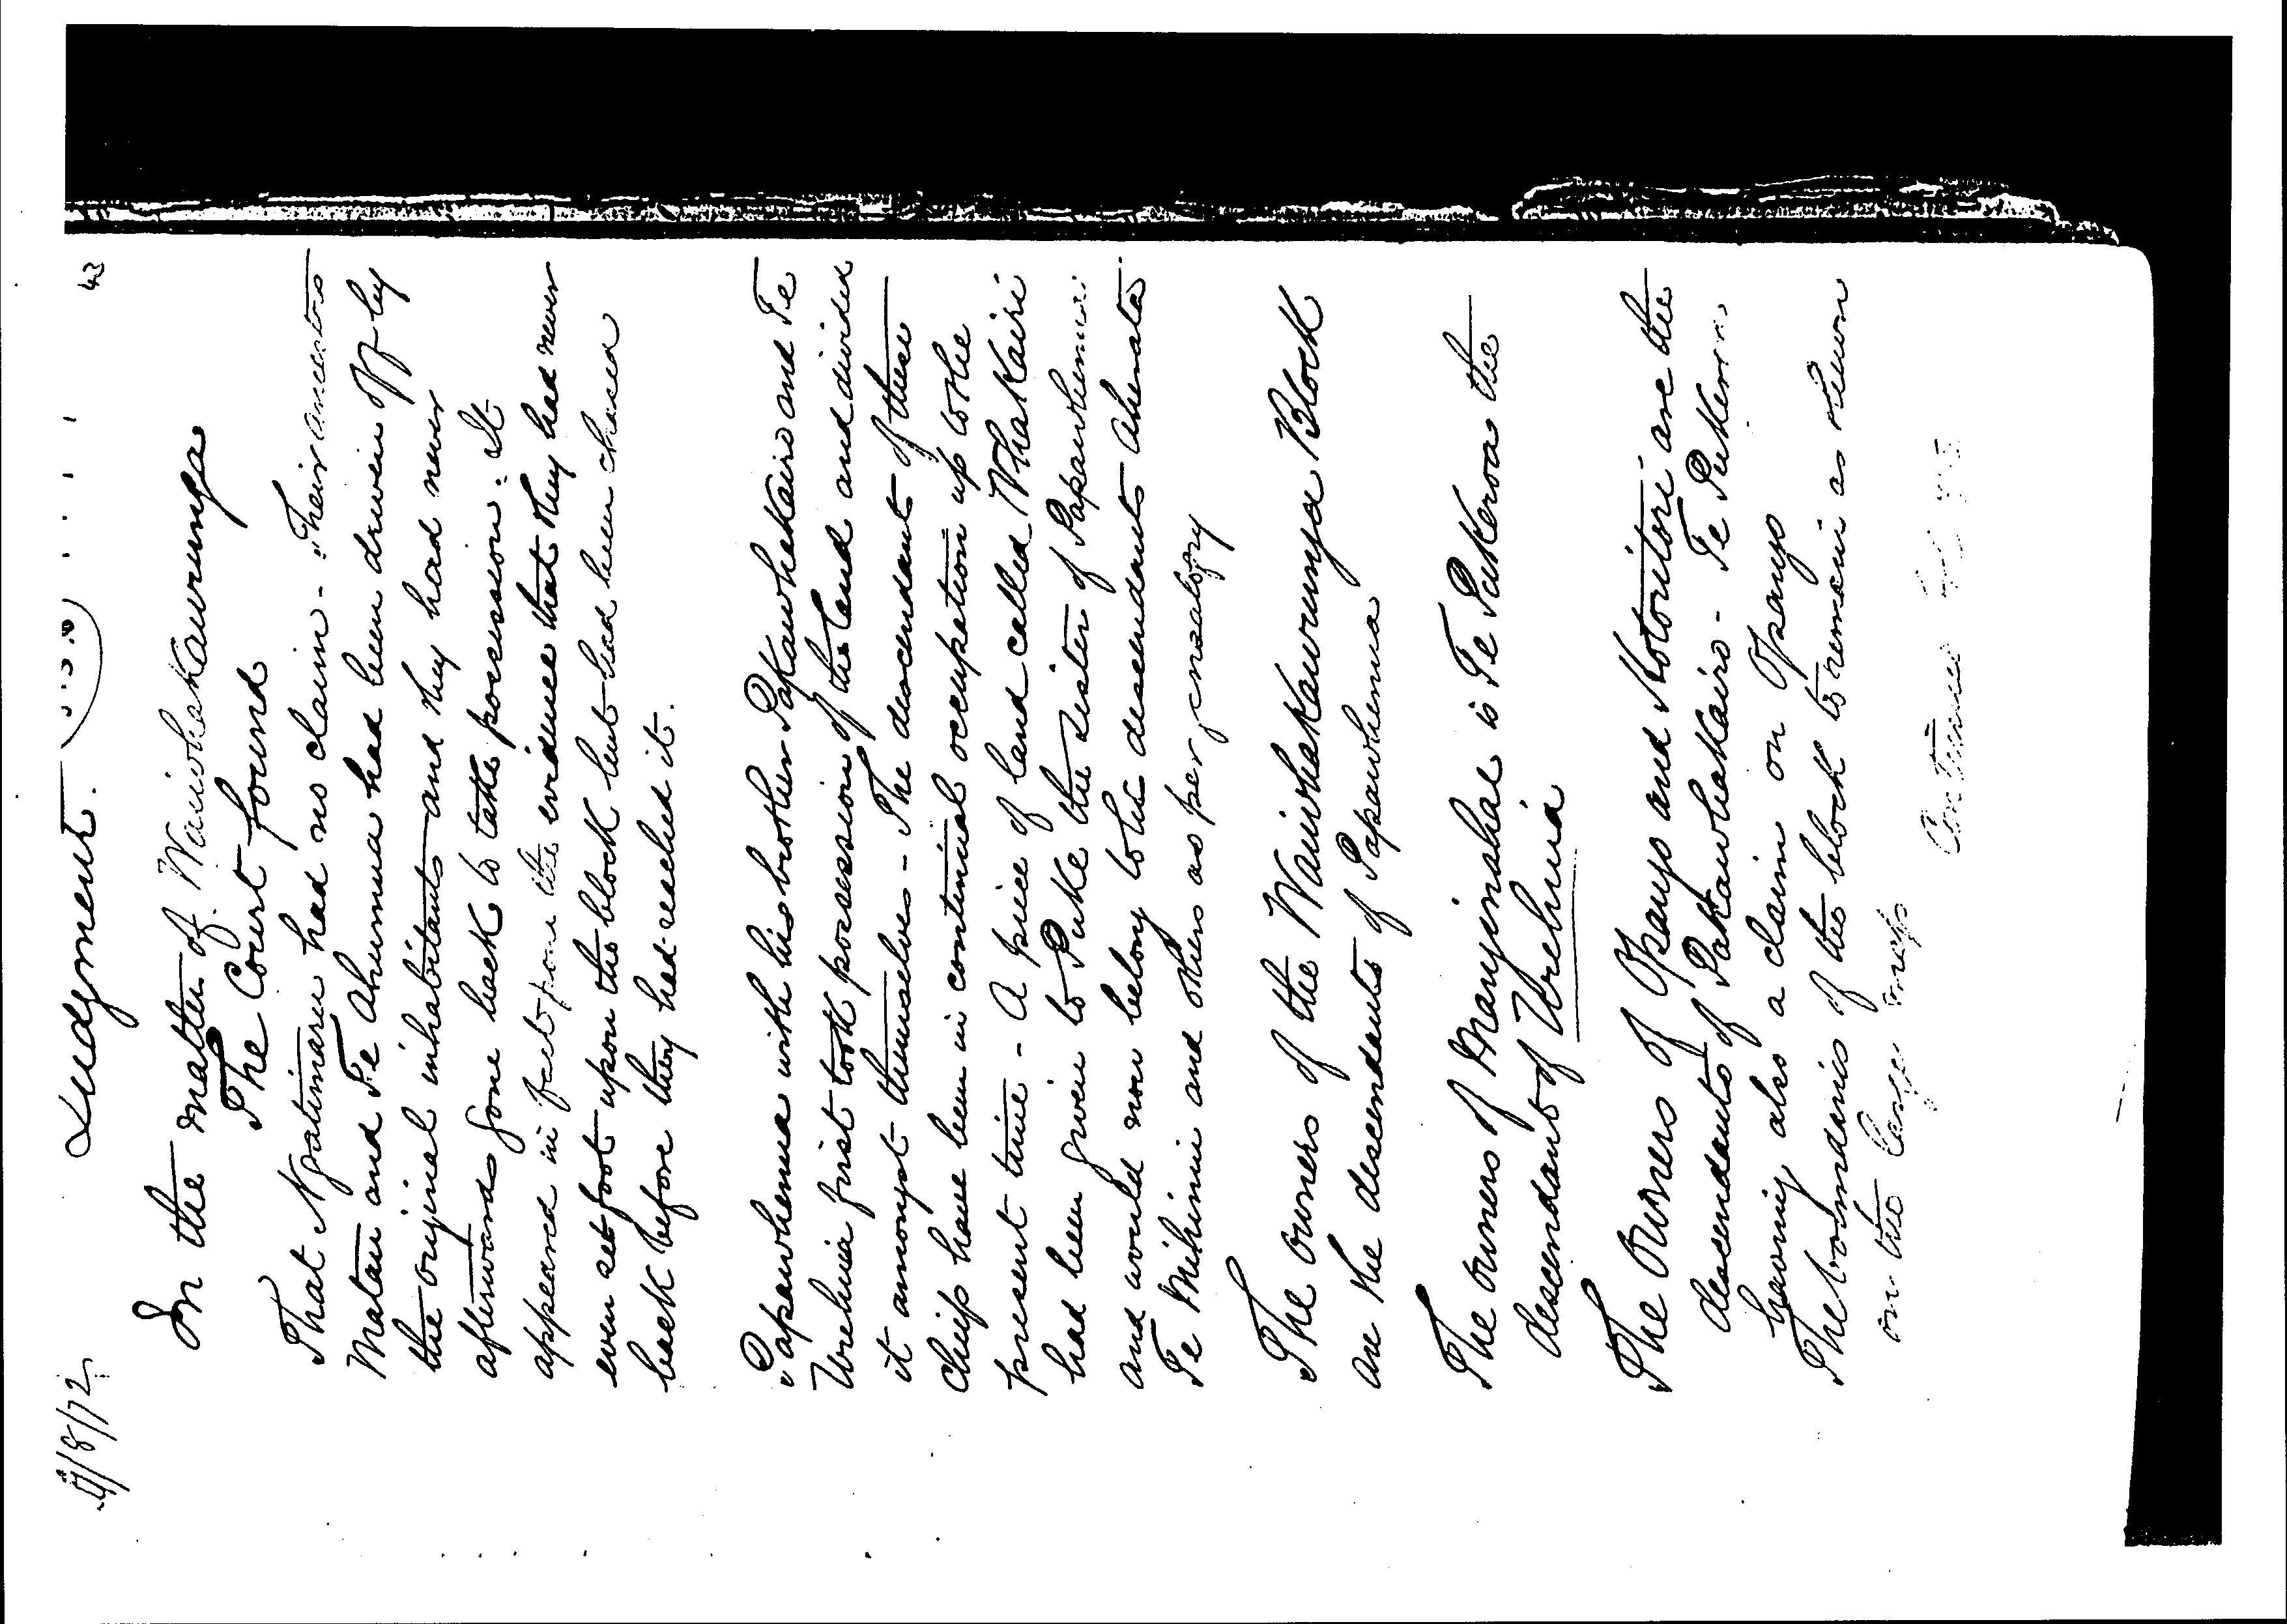 4/8/72
Judgment.
43
In the matter of Waiwhakaurunga
The Court found
That Ngatimaru had no claim - Their ancestors
Matau and Te Ahumua had been driven off by
the original inhabitants and they had never
afterwards gone back to take possession. It
appeared in fact from the evidence that they had never
even set foot upon the block but had been chased
back before they had reached it.
Papawhenua with his brother Pakawhakairo and Te
Urehuia first took possession of the land and divided
it amongst themselves - The descendant of these
Chiefs have been in continual occupation up to the
present time - A piece of land called Whakairi
had been given to Puke the sister of Papawhenua
and would now belong to his descendants Aherata
Te Mihinui and others as per genealogy
The owners of the Waiwhakaurunga Block
are the descendants of Papawhenua
The owners of Mangingahae is Te Pukeroa the
descendant of Urehuia
The owners of Opango and Motoritori are the
descendants of Pakawhakairo - Te Pukeroa
having also a claim on Opango
The boundaries of the block to remain as shewn
on the large maps